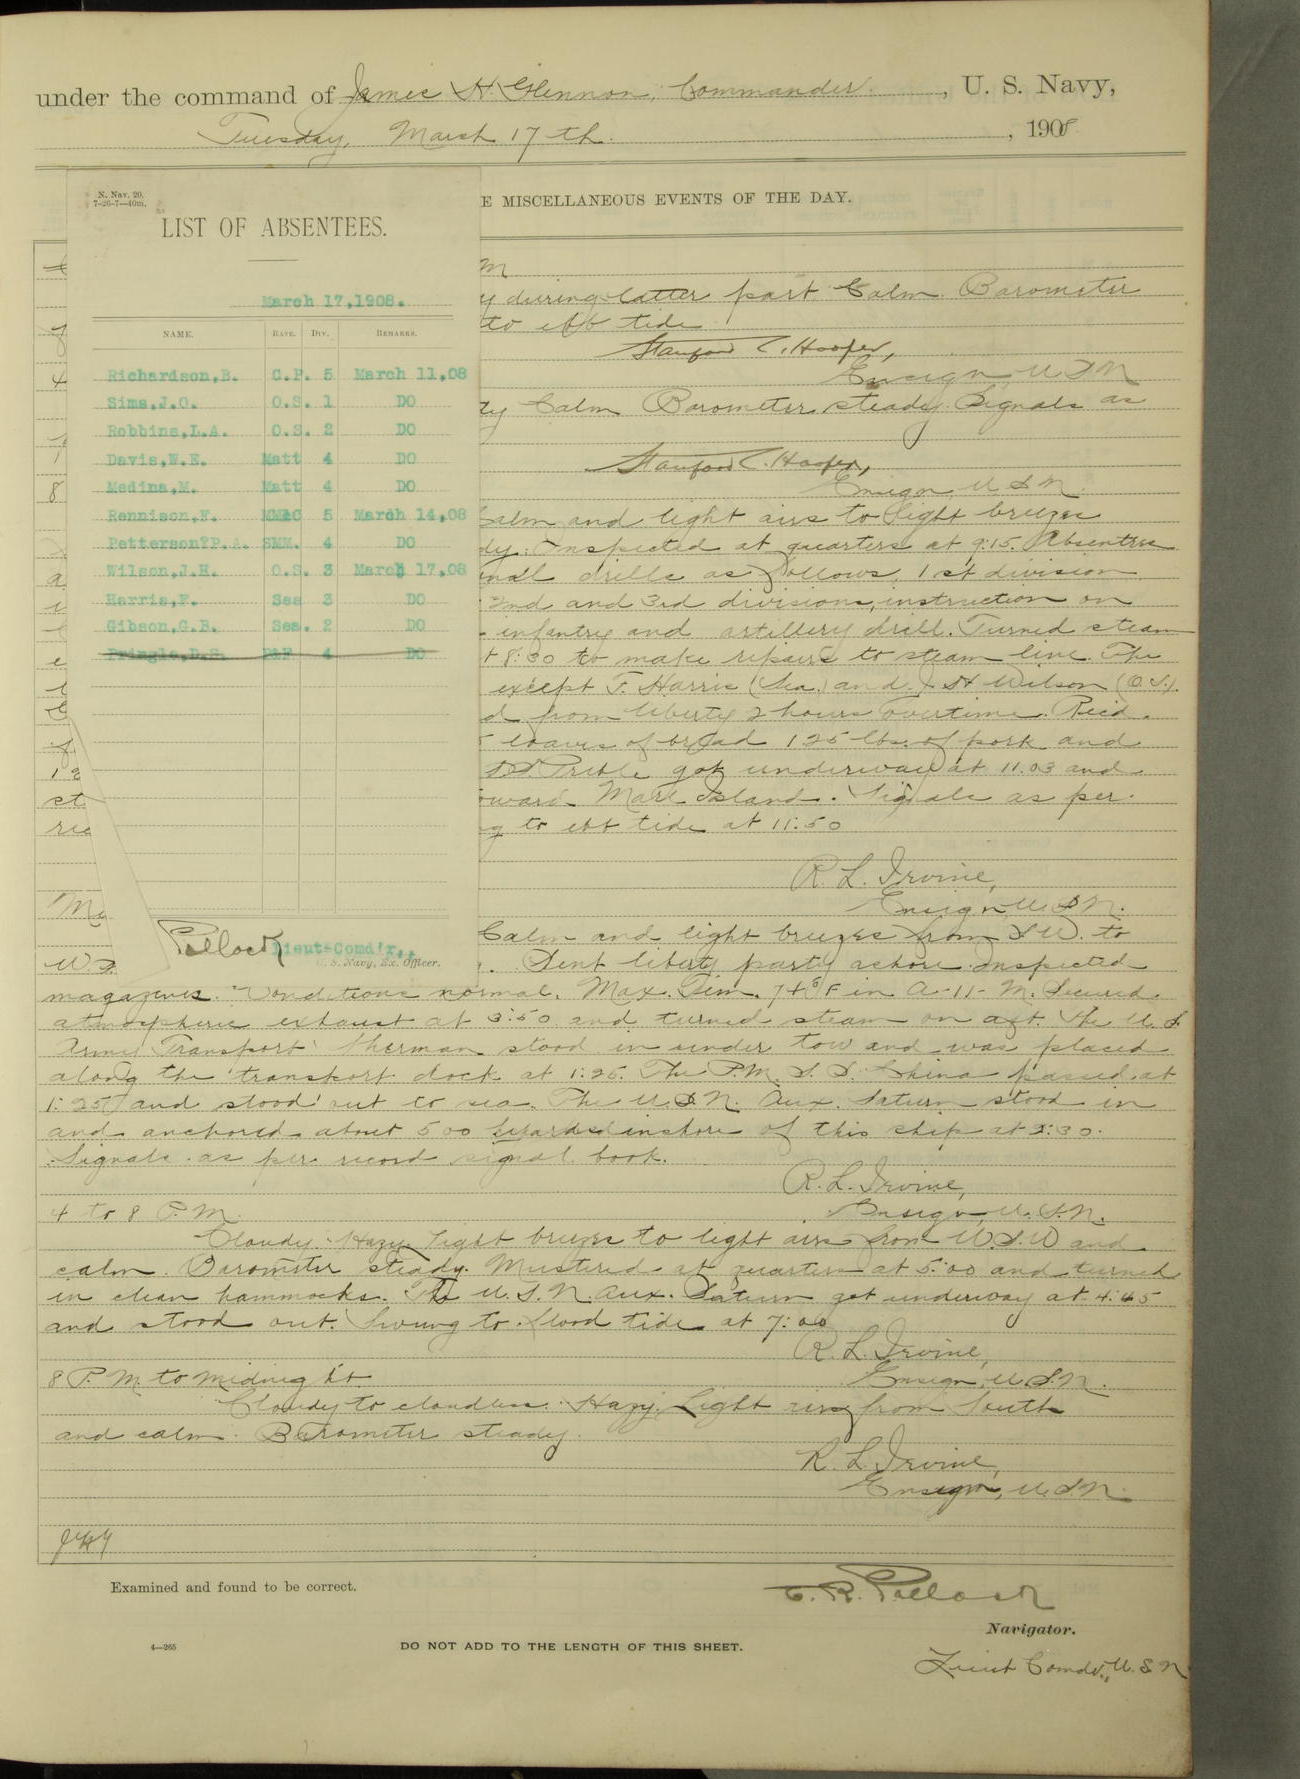 under the command of James H. Glennon, Commander, U. S. Navy,
Tuesday, March 17th, 1908
N. Nav. 20.
7-26-7—40m.
LIST OF ABSENTEES.
March 17,1908.
NAME. RATE. DIV. REMARKS.
Richardson,B. C.P. 5 March 11,08
Sims,J.O. O.S. 1 DO
Robbins,L.A. O.S. 2 DO
Davis,W.E. Matt 4 DO
Medina,M. Matt 4 DO
Rennison,F. 5 March 14,08
Petterson,P.A. 4 DO
Wilson,J.H. O.S. 3 March 17,08
Harris,F. Sea 3 DO
Gibson,G.B. Sea. 2 DO
Pringle,D.S. P&F 4 DO
Pollock Lieut-Comd'r,
U. S. Navy, Ex. Officer.
E MISCELLANEOUS EVENTS OF THE DAY.
M
y during latter part. Calm. Barometer
to ebb tide
Stanford C. Hooper,
Ensign, U S N
ty Calm Barometer steady. Signals as
Stanford C. Hooper,
Ensign, U. S. N.
Calm and light airs to light breezes
dy. Inspected at quarters at 9:15. Absentees
drills as follows, 1st division
2nd and 3rd divisions, instruction on
infantry and artillery drill. Turned steam
t 8:30 to make repairs to steam line. The
except F. Harris (Sea.) and J H Wilson (O.S.).
d from liberty 2 hours overtime. Rec'd.
5 loaves of bread 125 lbs. of pork and
Preble got underway at 11.03 and
oward Mare Island. Signals as per
ng to ebb tide at 11:50
R. L. Irvine,
Ensign, U. S. N.
Calm and light breezes from SW. to
Sent liberty party ashore. Inspected
magazines. Conditions normal. Max. Tem. 74° F in A-11-M. Secured
atmospheric exhaust at 3:50 and turned steam on aft. The U. S.
Army Transport Sherman stood in under tow and was placed
along the transport dock at 1:25. The P.M. S. S. China passed at
1:25 and stood out to sea. The U.S.N. Aux. Saturn stood in
and anchored about 500 yards inshore of this ship at 3:30.
Signals as per record signal book.
R. L. Irvine,
Ensign, U. S. N.
4 to 8 P. M.
Cloudy. Hazy. Light breezes to light airs from W.S.W and
calm. Barometer steady. Mustered at quarters at 5:00 and turned
in clean hammocks. The U. S. N. Aux. Saturn got underway at 4:45
and stood out. Swung to flood tide at 7:00
R. L. Irvine,
Ensign, U. S. N.
8 P. M. to midnight
Cloudy to cloudless. Hazy. Light airs from South
and calm. Barometer steady.
R. L. Irvine,
Ensign, U. S. N.
Examined and found to be correct.
C. R. Pollock
Navigator.
4—265
DO NOT ADD TO THE LENGTH OF THIS SHEET.
Lieut Comdr., U. S N